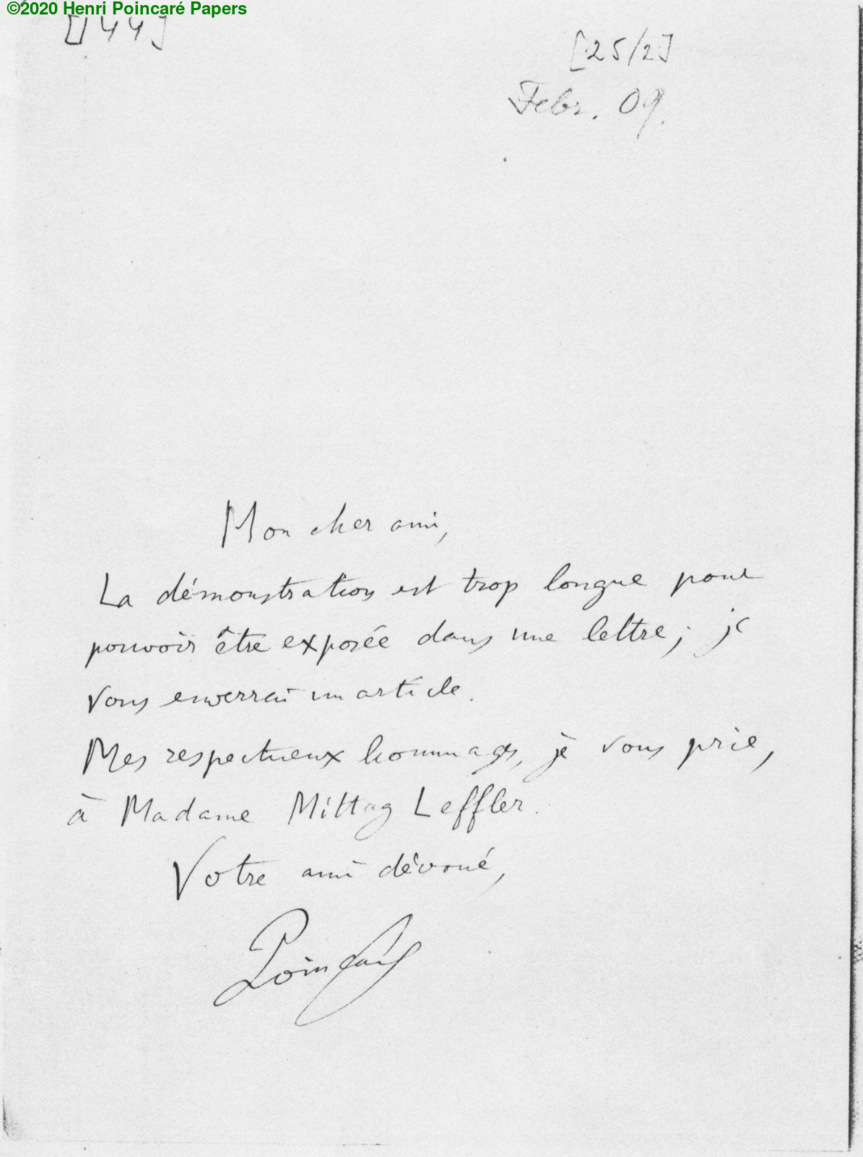 ©2020 Henri Poincaré Papers
[144]
[25/2]
Febr. 09.
Mon cher ami,
La démonstration est trop longue pour
pouvoir être exposée dans une lettre; je
vous enverrai un article.
Mes respectueux hommages, je vous prie,
à Madame Mittag Leffler.
Votre ami dévoué,
Poincaré